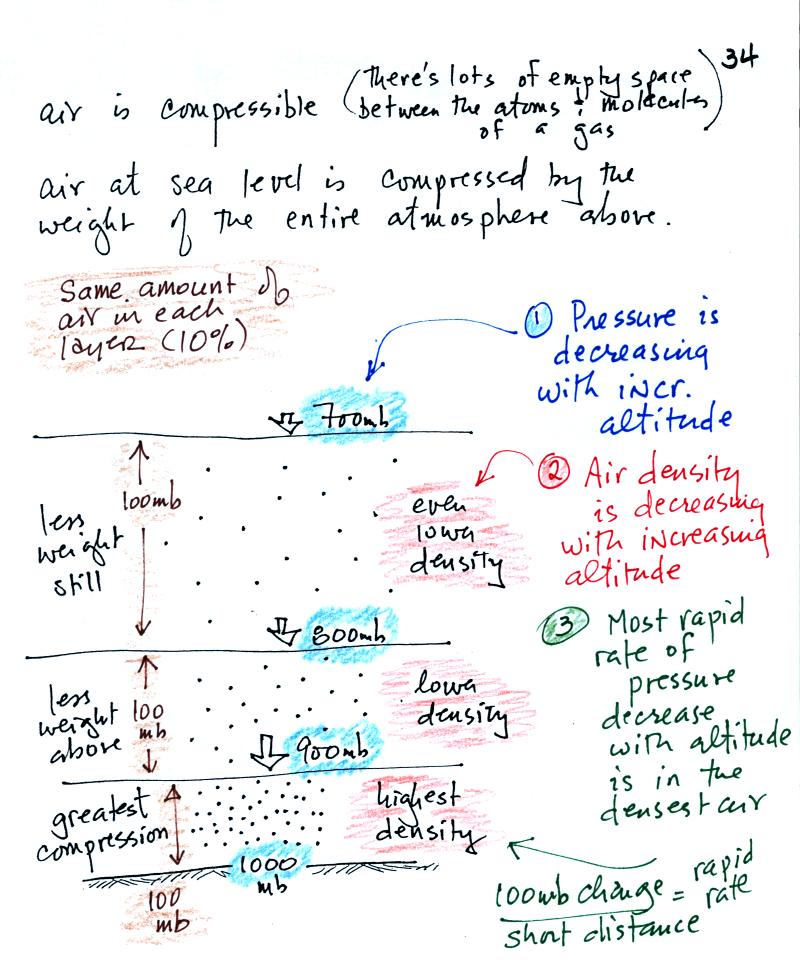 34
air is compressible (there's lots of empty space
between the atoms & molecules
of a gas)
air at sea level is compressed by the
weight of the entire atmosphere above.
Same amount of
air in each
layer (10%)
1 Pressure is
decreasing
with incr.
altitude
700mb
100mb
less
weight
still
even
lower
density
2 Air density
is decreasing
with increasing
altitude
800mb
less
weight
above
100
mb
lower
density
3 Most rapid
rate of
pressure
decrease
with altitude
is in the
densest air
900mb
greatest
compression
highest
density
1000
mb
100
mb
100mb change = rapid rate
short distance